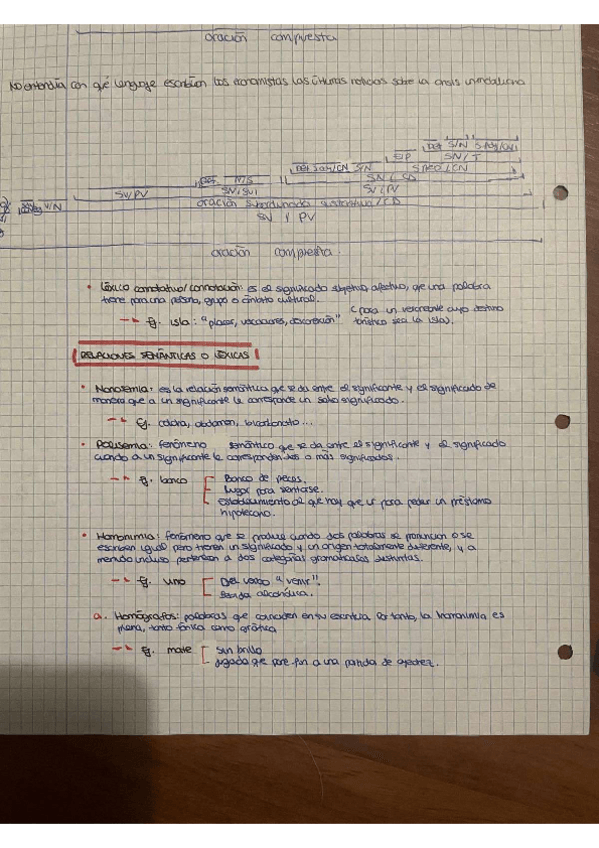 oración compuesta
No entendía con qué lenguaje escribían los economistas las últimas noticias sobre la crisis inmobiliaria
Det S/N S.Adj/CN
E/P SN/T
Det S.Adj/CN S/N SPrep/CN
Det N/S SN/CD
SV/PV SN/SUJ SV/PV
V/N oración subordinada sustantiva/CD
SV Y PV
oración compuesta.
• Léxico connotativo/connotación: es el significado subjetivo, afectivo, que una palabra
tiene para una persona, grupo o ámbito cultural.
→ Ej. isla: "placer, vacaciones, desconexión" (para un veraneante cuyo destino
turístico sea la isla).
RELACIONES SEMÁNTICAS O LÉXICAS
• Monosemia: es la relación semántica que se da entre el significante y el significado de
manera que a un significante le corresponde un solo significado.
→ Ej. abdomen, bicarbonato...
• Polisemia: fenómeno semántico que se da entre el significante y el significado
cuando a un significante le corresponden dos o más significados.
→ Ej. banco [ Banco de peces.
Lugar para sentarse.
Establecimiento al que hay que ir para pedir un préstamo
hipotecario.
• Homonimia: fenómeno que se produce cuando dos palabras se pronuncian o se
escriben igual pero tienen un significado y un origen totalmente diferente, y a
menudo incluso pertenecen a dos categorías gramaticales distintas.
→ Ej. vino [ Del verbo "venir".
Bebida alcohólica.
a. Homógrafos: palabras que coinciden en su escritura. Por tanto, la homonimia es
plena, tanto fónica como gráfica
→ Ej. mate [ Sin brillo
Jugada que pone fin a una partida de ajedrez.